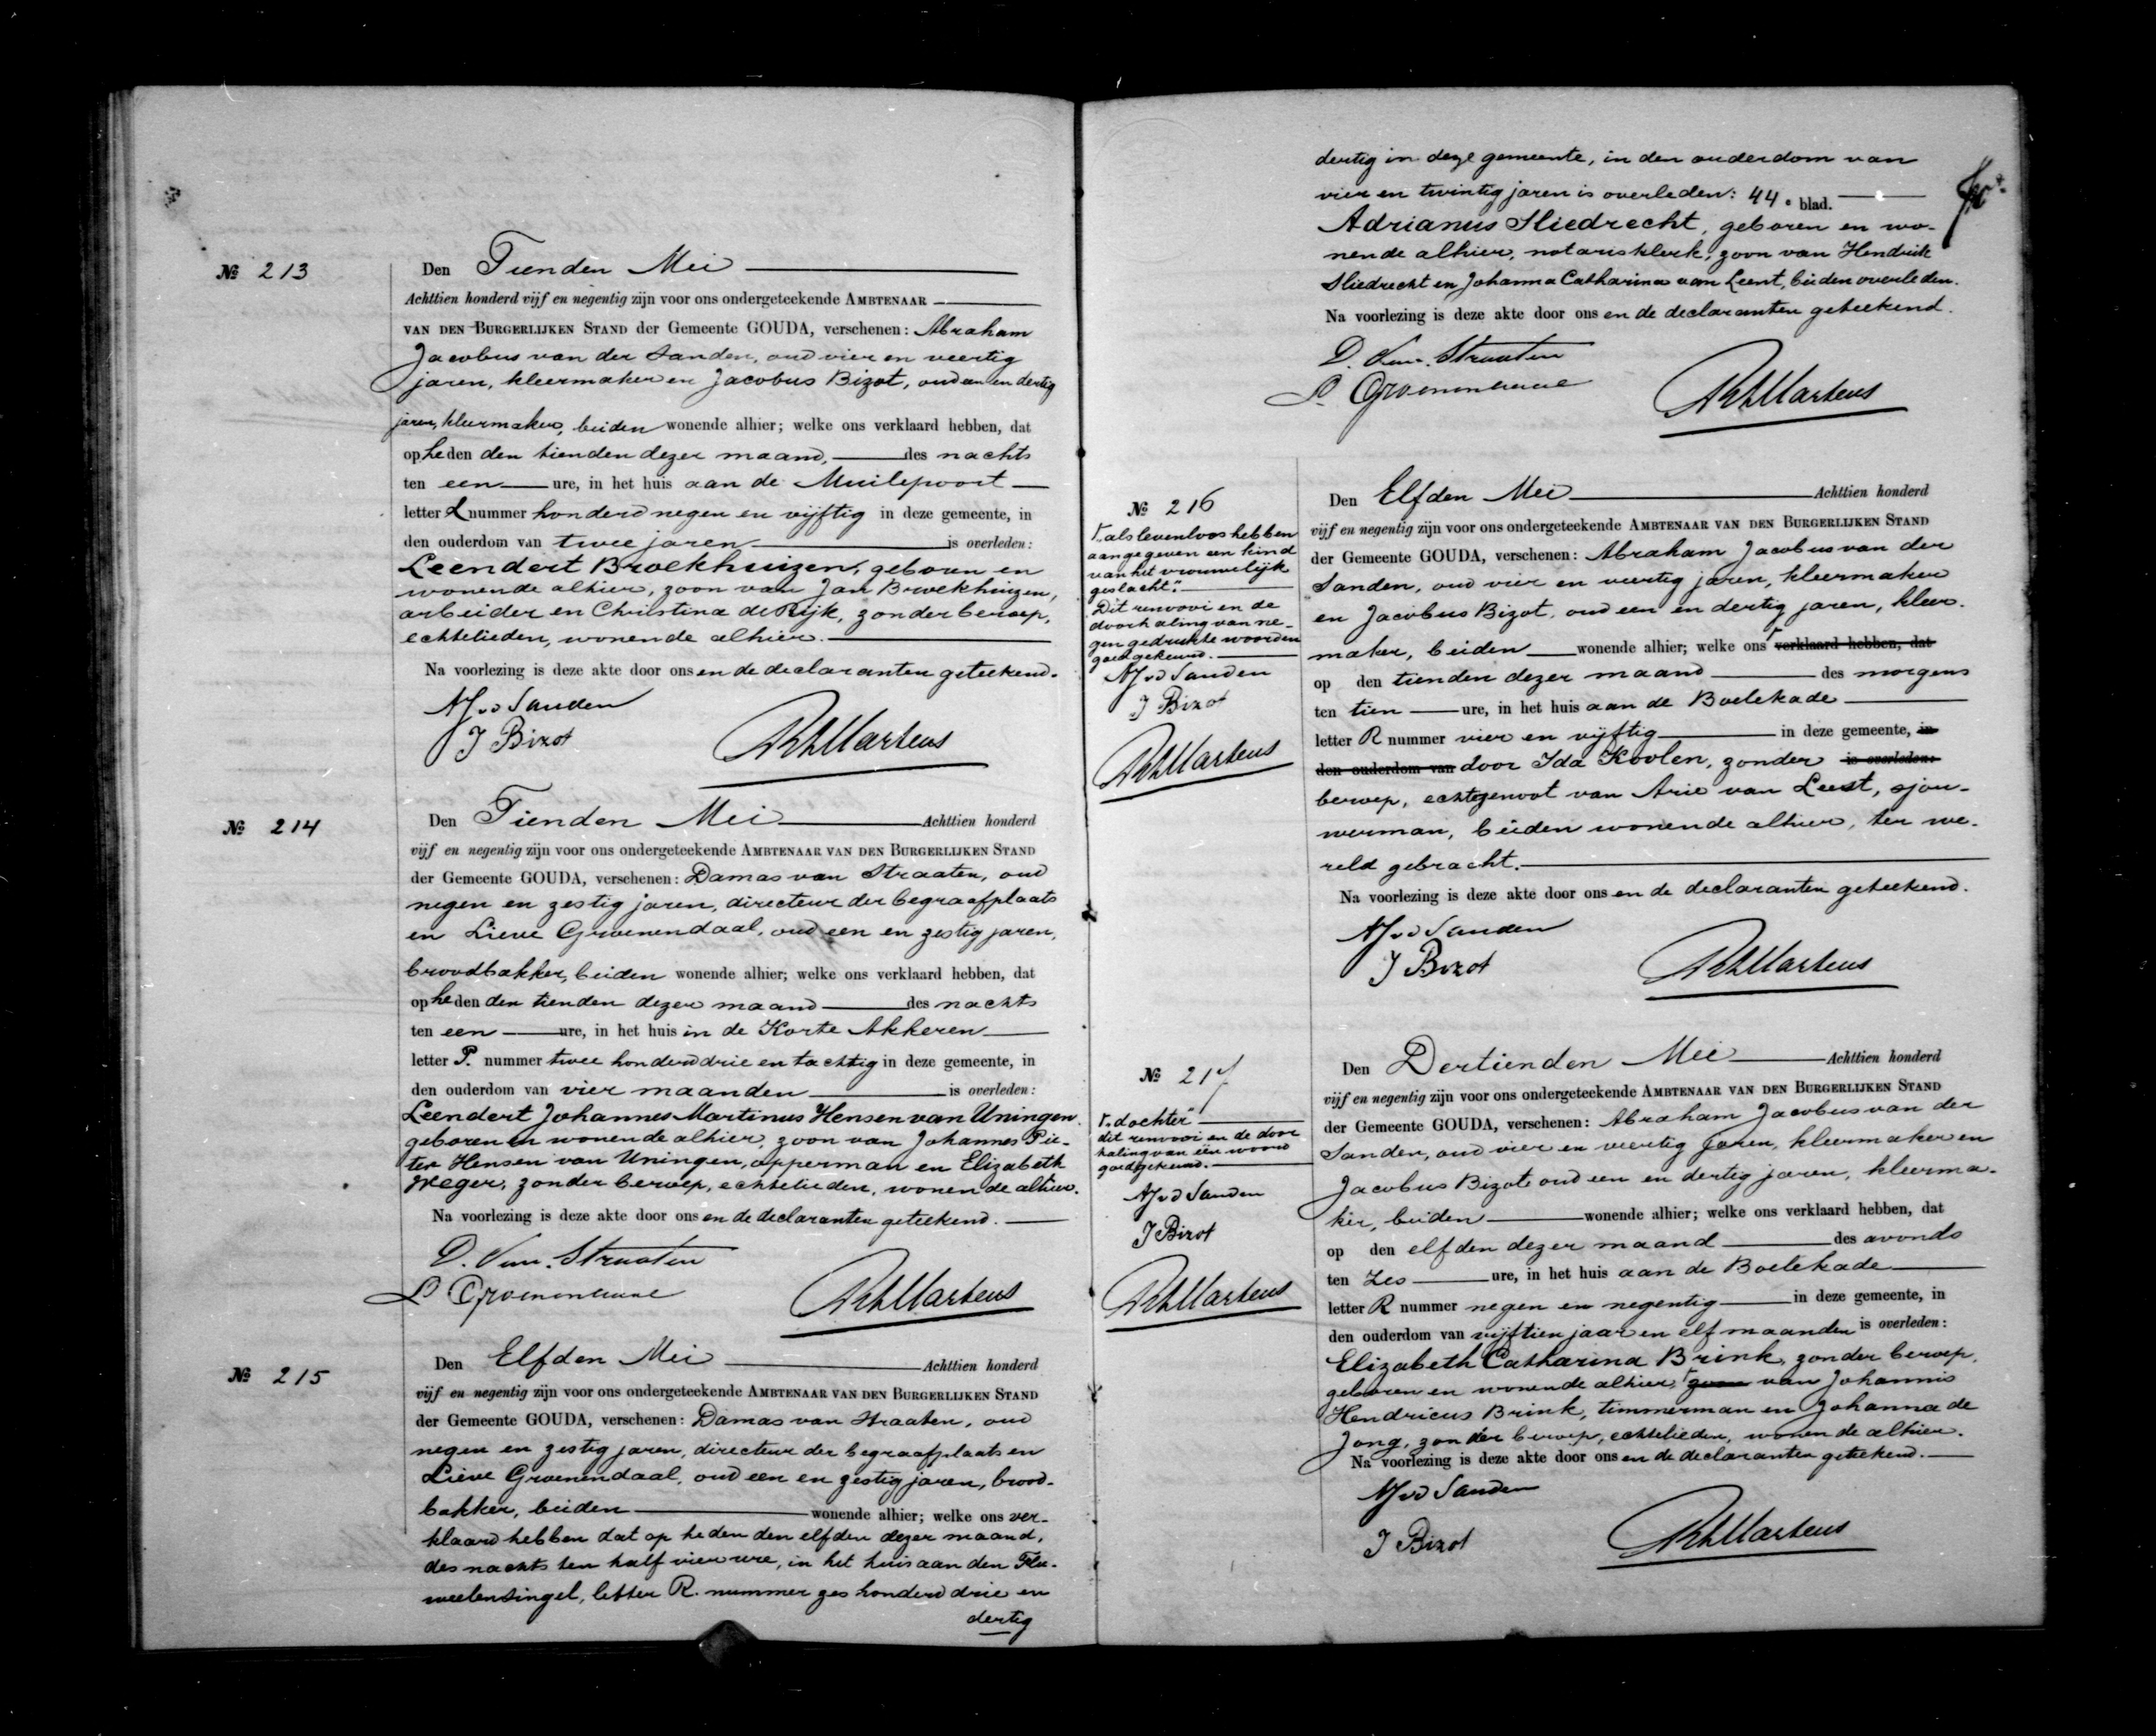 № 213
Den Tienden Mei
Achttien honderd vijf en negentig zijn voor ons ondergeteekende AMBTENAAR
VAN DEN BURGERLIJKEN STAND der Gemeente GOUDA, verschenen: Abraham
Jacobus van der Sanden, oud vier en veertig
jaren, kleermaker en Jacobus Bizot, oud een en dertig
jaren, kleermaker, beiden wonende alhier; welke ons verklaard hebben, dat
op heden den tienden dezer maand, des nachts
ten een ure, in het huis aan de Muilepoort
letter L nummer honderd negen en vijftig in deze gemeente, in
den ouderdom van twee jaren is overleden:
Leendert Broekhuizen, geboren en
wonende alhier, zoon van Jan Broekhuizen,
arbeider en Christina de Rijk, zonder beroep,
echtelieden, wonende alhier.
Na voorlezing is deze akte door ons en de declaranten geteekend.
AJvd Sanden
J Bizot
Martens
№ 214
Den Tienden Mei Achttien honderd
vijf en negentig zijn voor ons ondergeteekende AMBTENAAR VAN DEN BURGERLIJKEN STAND
der Gemeente GOUDA, verschenen: Damas van Straaten, oud
negen en zestig jaren, directeur der begraafplaats
en Lieve Groenendaal, oud een en zestig jaren,
broodbakker, beiden wonende alhier; welke ons verklaard hebben, dat
op heden den tienden dezer maand des nachts
ten een ure, in het huis in de Korte Akkeren
letter P. nummer twee honderd drie en tachtig in deze gemeente, in
den ouderdom van vier maanden is overleden:
Leendert Johannes Martinus Hensen van Uningen
geboren en wonende alhier, zoon van Johannes Pie-
ter Hensen van Uningen, opperman en Elizabeth
Weger, zonder beroep, echtelieden, wonende alhier.
Na voorlezing is deze akte door ons en de declaranten geteekend.
D. Van Straaten
L Groenendaal
Martens
№ 215
Den Elfden Mei Achttien honderd
vijf en negentig zijn voor ons ondergeteekende AMBTENAAR VAN DEN BURGERLIJKEN STAND
der Gemeente GOUDA, verschenen: Damas van Straaten, oud
negen en zestig jaren, directeur der begraafplaats en
Lieve Groenendaal, oud een en zestig jaren, brood-
bakker, beiden wonende alhier; welke ons ver-
klaard hebben dat op heden den elfden dezer maand,
des nachts ten half vier ure, in het huis aan den Flu-
weelensingel, letter R. nummer zes honderd drie en
dertig
dertig in deze gemeente, in den ouderdom van
vier en twintig jaren is overleden: 44e blad.
Adrianus Sliedrecht, geboren en wo-
nende alhier, notarisklerk, zoon van Hendrik
Sliedrecht en Johanna Catharina van Leent, beiden overleden.
Na voorlezing is deze akte door ons en de declaranten geteekend.
D. Van Straaten
L Groenendaal
Martens
№ 216
als levenloos hebben
aangegeven een kind
van het vrouwelijk
geslacht."
Dit renvooi en de
doorhaling van ne-
gen gedrukte woorden
goedgekeurd.
AJvd Sanden
J Bizot
Martens
Den Elfden Mei Achttien honderd
vijf en negentig zijn voor ons ondergeteekende AMBTENAAR VAN DEN BURGERLIJKEN STAND
der Gemeente GOUDA, verschenen: Abraham Jacobus van der
Sanden, oud vier en veertig jaren, kleermaker
en Jacobus Bizot, oud een en dertig jaren, kleer-
maker, beiden wonende alhier; welke ons verklaard hebben, dat
op den tienden dezer maand des morgens
ten tien ure, in het huis aan de Boelekade
letter R nummer vier en vijftig in deze gemeente, in
den ouderdom van door Ida Koolen, zonder is overleden:
beroep, echtgenoot van Arie van Leest, sjou-
werman, beiden wonende alhier, ter we-
reld gebracht.
Na voorlezing is deze akte door ons en de declaranten geteekend.
AJvd Sanden
J Bizot
Martens
№ 217
"dochter"
dit renvooi en de door
haling van één woord
goedgekeurd.
AJvd Sanden
J Bizot
Martens
Den Dertienden Mei Achttien honderd
vijf en negentig zijn voor ons ondergeteekende AMBTENAAR VAN DEN BURGERLIJKEN STAND
der Gemeente GOUDA, verschenen: Abraham Jacobus van der
Sanden, oud vier en veertig jaren, kleermaker en
Jacobus Bizot, oud een en dertig jaren, kleerma-
ker, beiden wonende alhier; welke ons verklaard hebben, dat
op den elfden dezer maand des avonds
ten zes ure, in het huis aan de Boelekade
letter R nummer negen en negentig in deze gemeente, in
den ouderdom van vijftien jaar en elf maanden is overleden:
Elizabeth Catharina Brink, zonder beroep,
geboren en wonende alhier, zoon van Johannis
Hendricus Brink, timmerman en Johanna de
Jong, zonder beroep, echtelieden, wonende alhier.
Na voorlezing is deze akte door ons en de declaranten geteekend.
AJvd Sanden
J Bizot
Martens